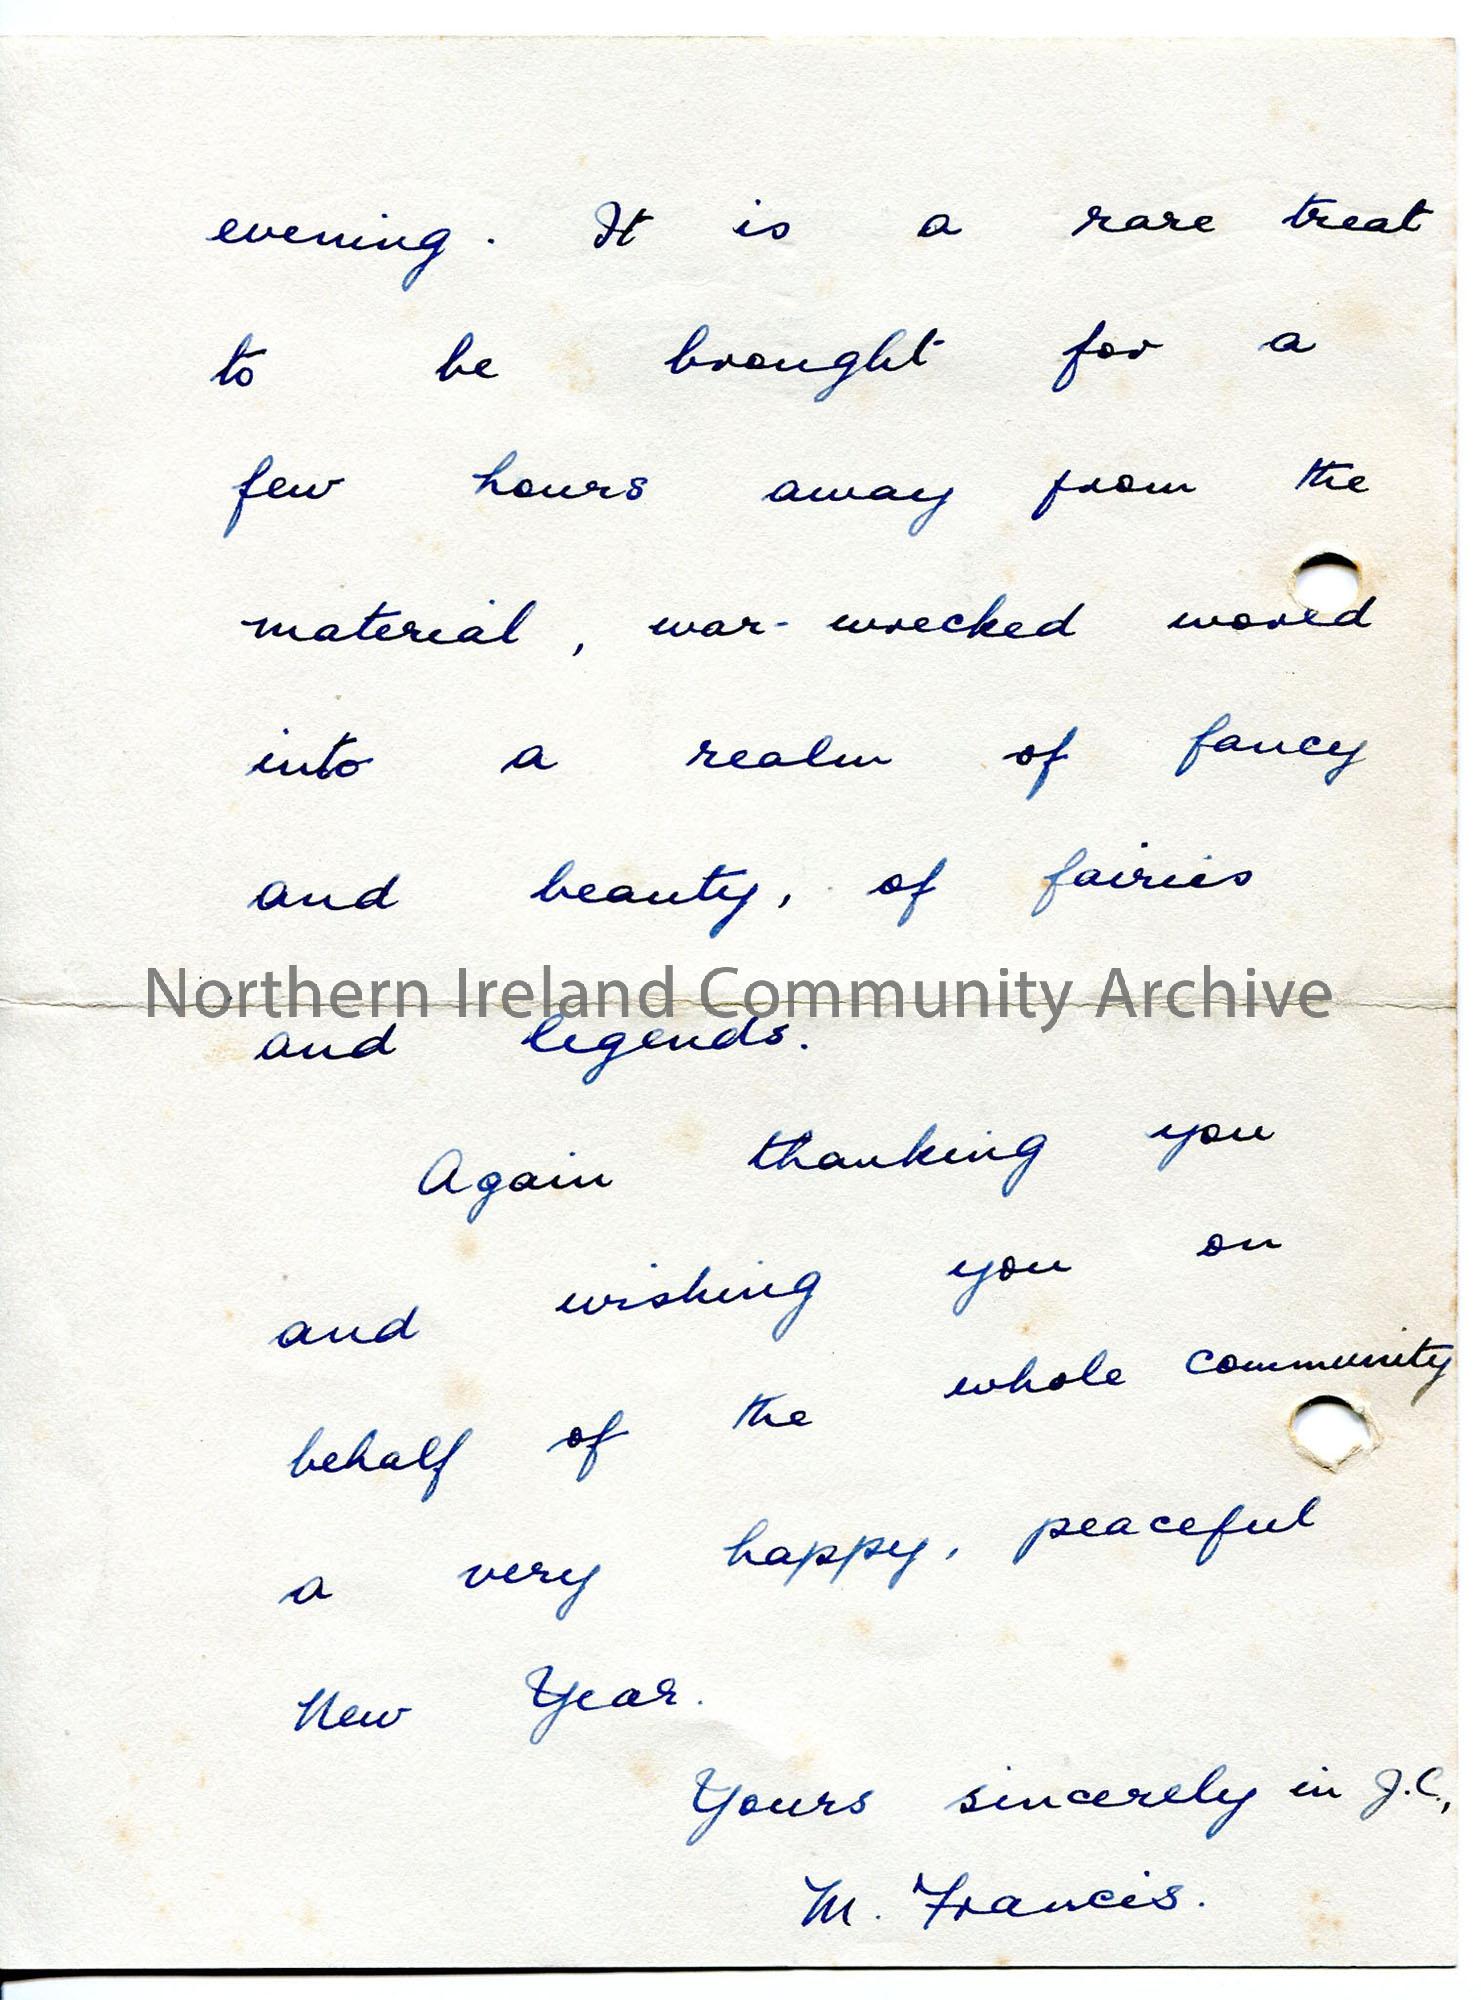 evening. It is a rare treat
to be brought for a
few hours away from the
material, war-wrecked world
into a realm of fancy
and beauty, of fairies
Northern Ireland Community Archive
and legends.
Again thanking you
and wishing you on
behalf of the whole community
a very happy, peaceful
New Year.
Yours sincerely in J.C.,
M. Francis.